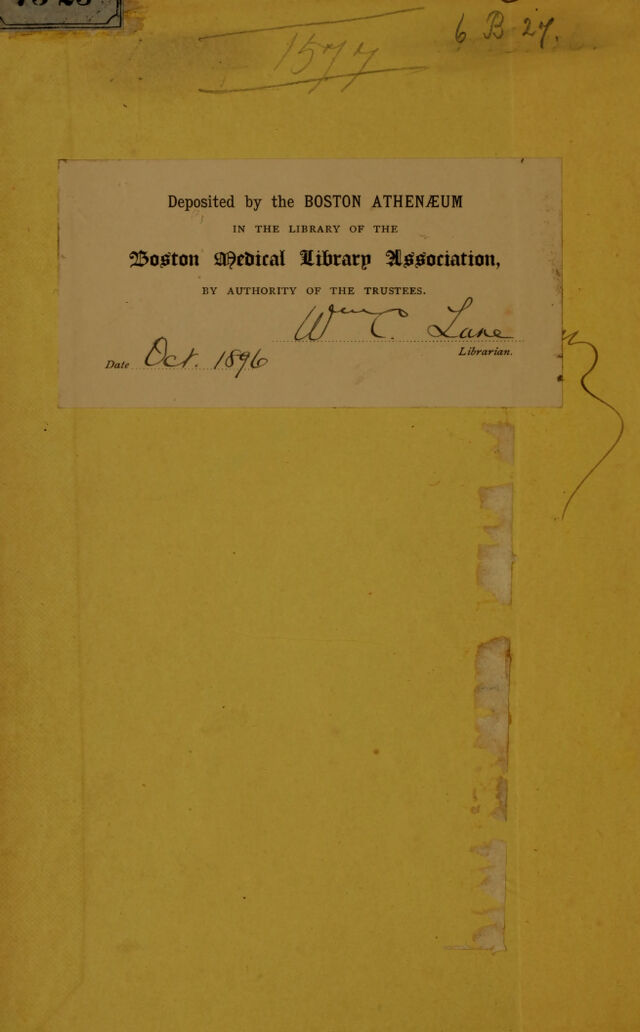 1577
6 B 27.
Deposited by the BOSTON ATHENÆUM
IN THE LIBRARY OF THE
Boston Medical Library Association,
BY AUTHORITY OF THE TRUSTEES.
Wm C. Lane
Librarian.
Date Oct. 1896